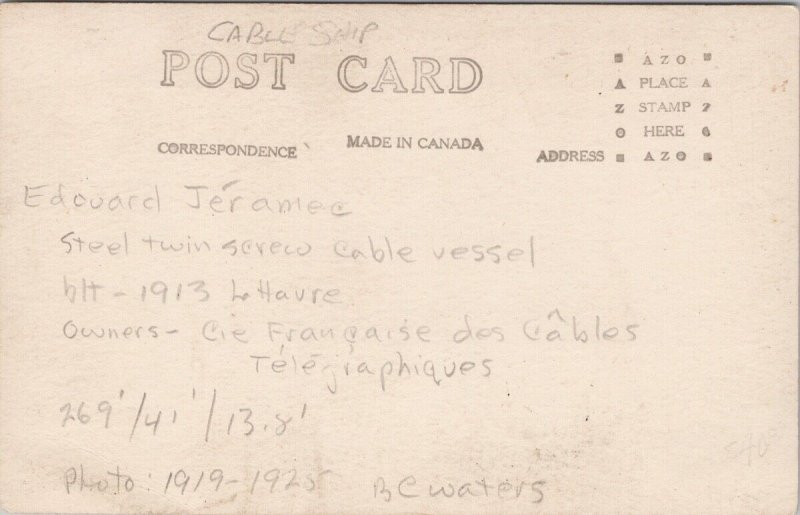 CABLE SHIP
POST CARD
CORRESPONDENCE
MADE IN CANADA
ADDRESS
AZO
A PLACE A
Z STAMP Z
O HERE O
AZO
Edouard Jéramec
Steel twin screw cable vessel
blt - 1913 Le Havre
Owners - Cie Française des Câbles
Télégraphiques
269'/41'/13.8'
Photo: 1919-1925 BC waters